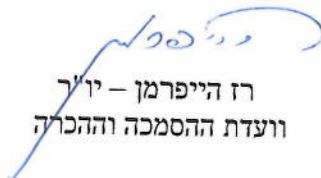 רז הייפרמן – יו"ר
וועדת ההסמכה וההכרה